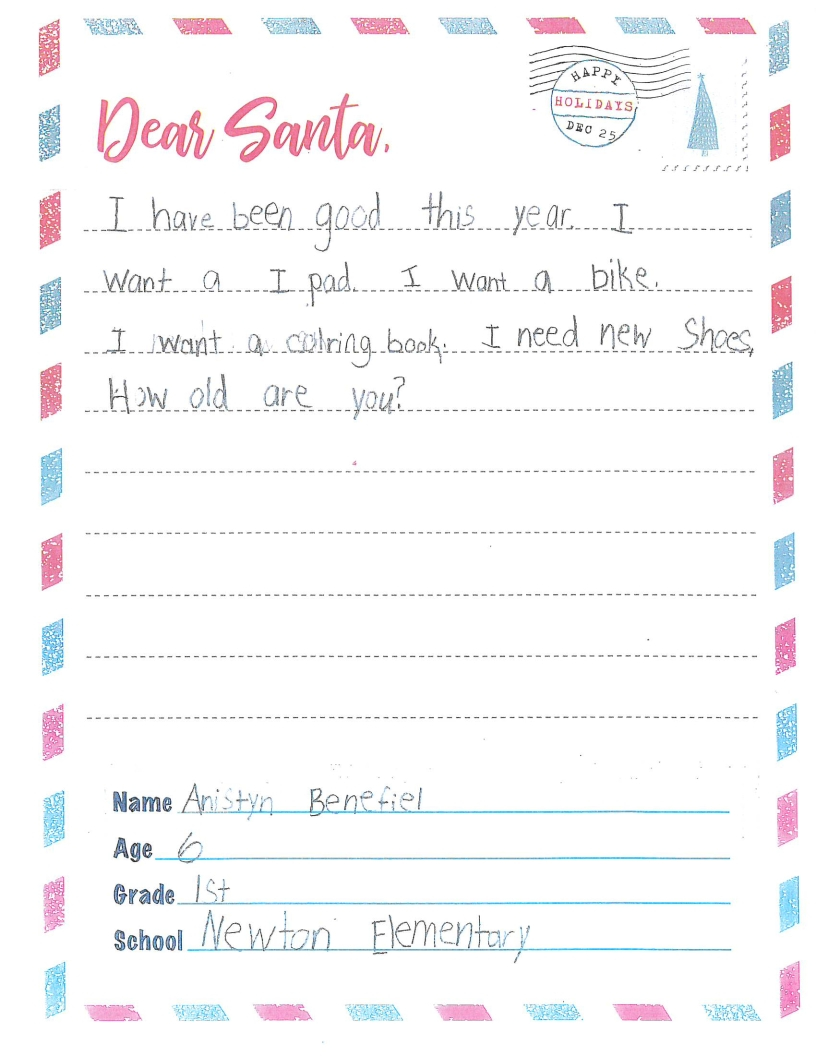 HAPPY
HOLIDAYS
DEC 25
Dear Santa,
I have been good this year. I
want a I pad. I want a bike.
I want a colring book. I need new Shoes,
How old are you?
Name Anistyn Benefiel
Age 6
Grade 1st
School Newton Elementary